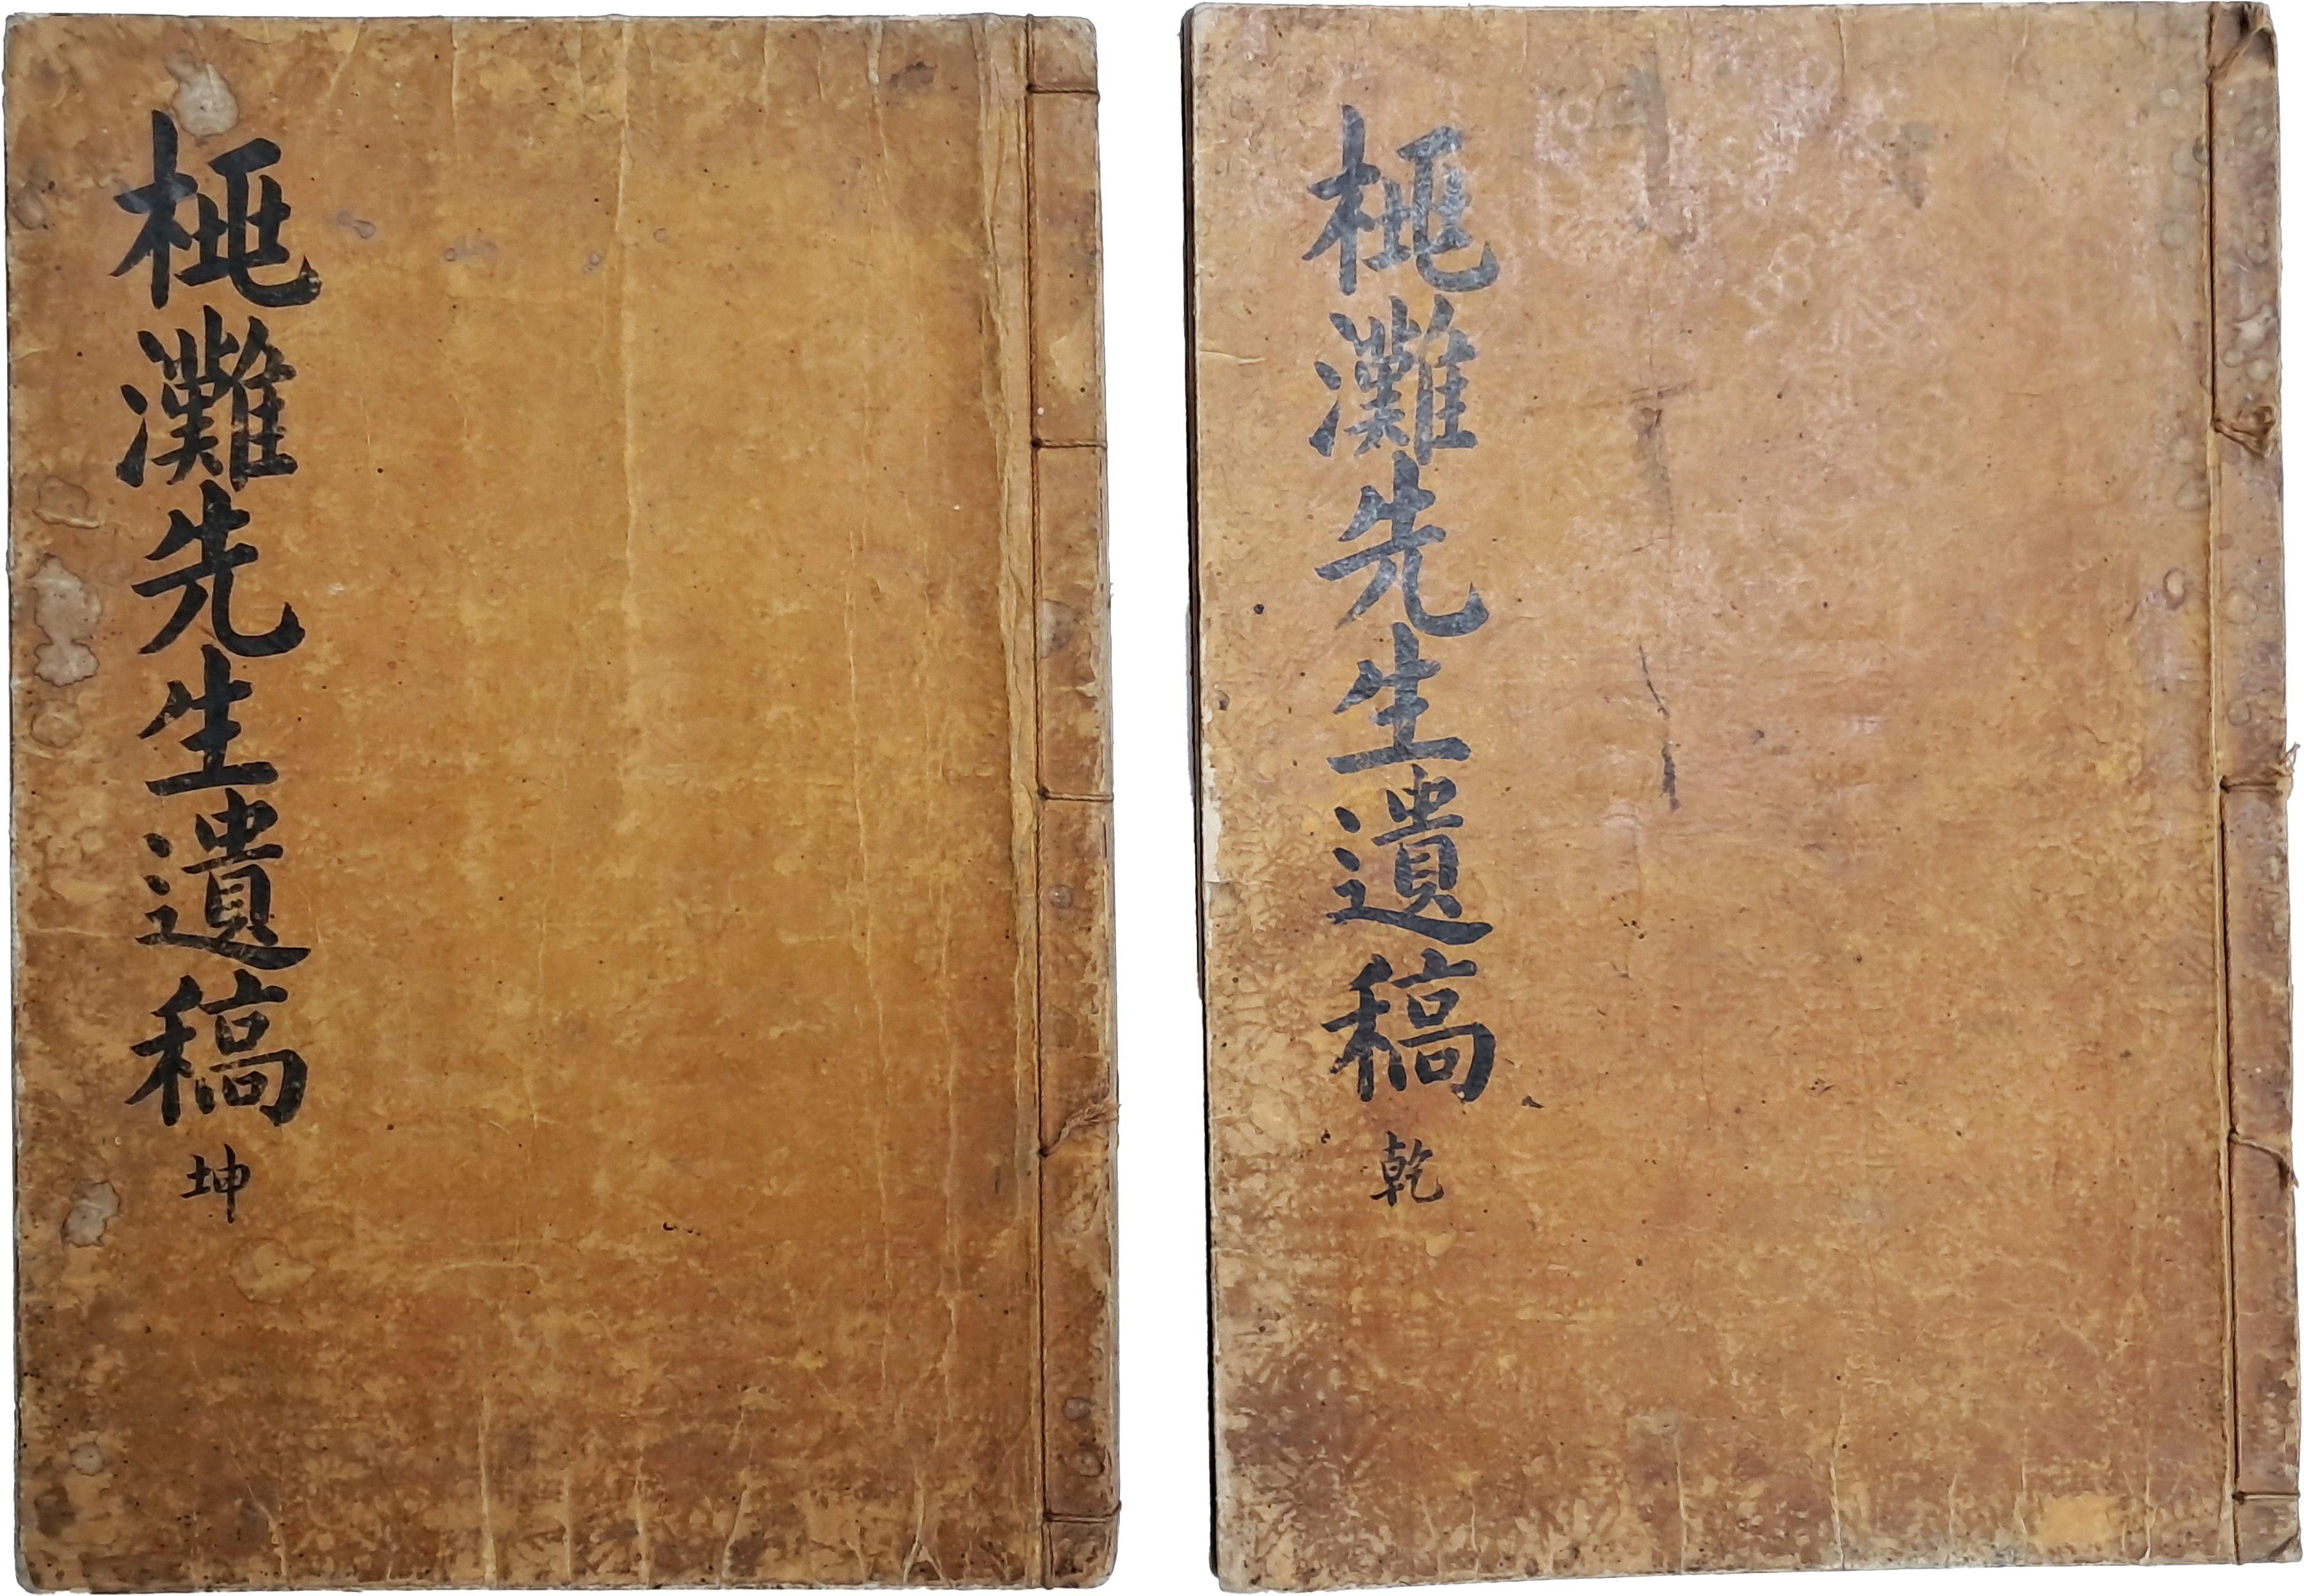 灘先生遺稿 乾
灘先生遺稿 坤